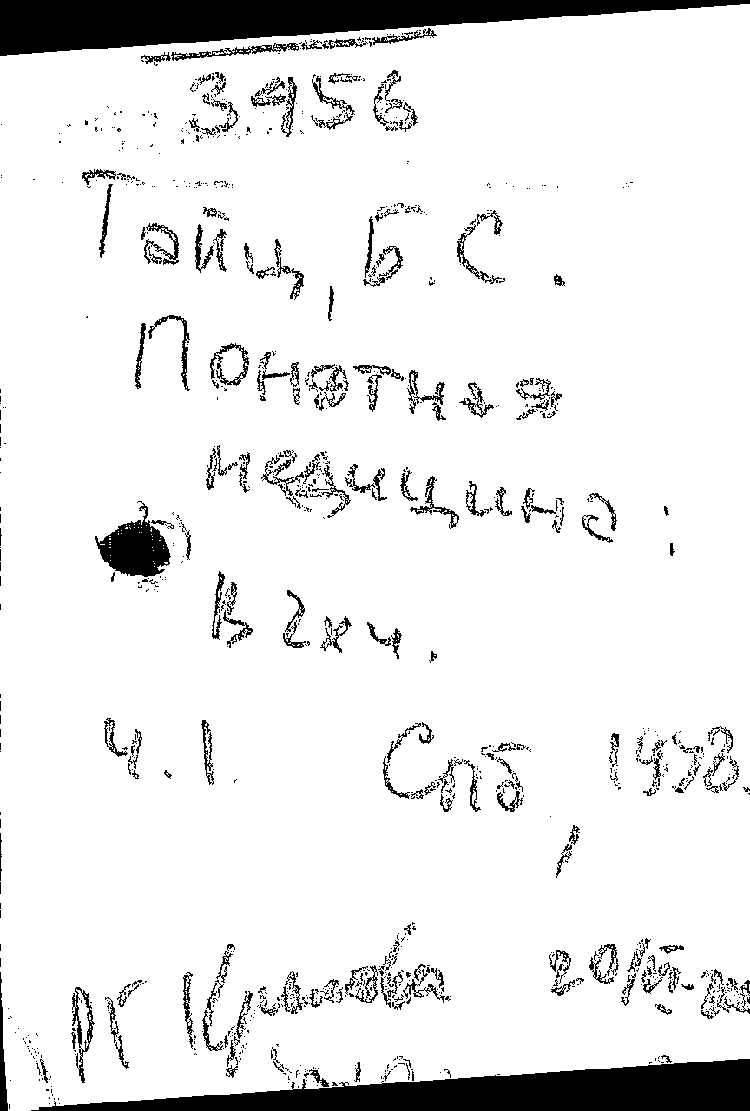 3456
Тайц, Б.С.
Понятная
медицина:
В 2х ч.
Ч.1. Спб, 1998.
РГ Крылова 20/VI-